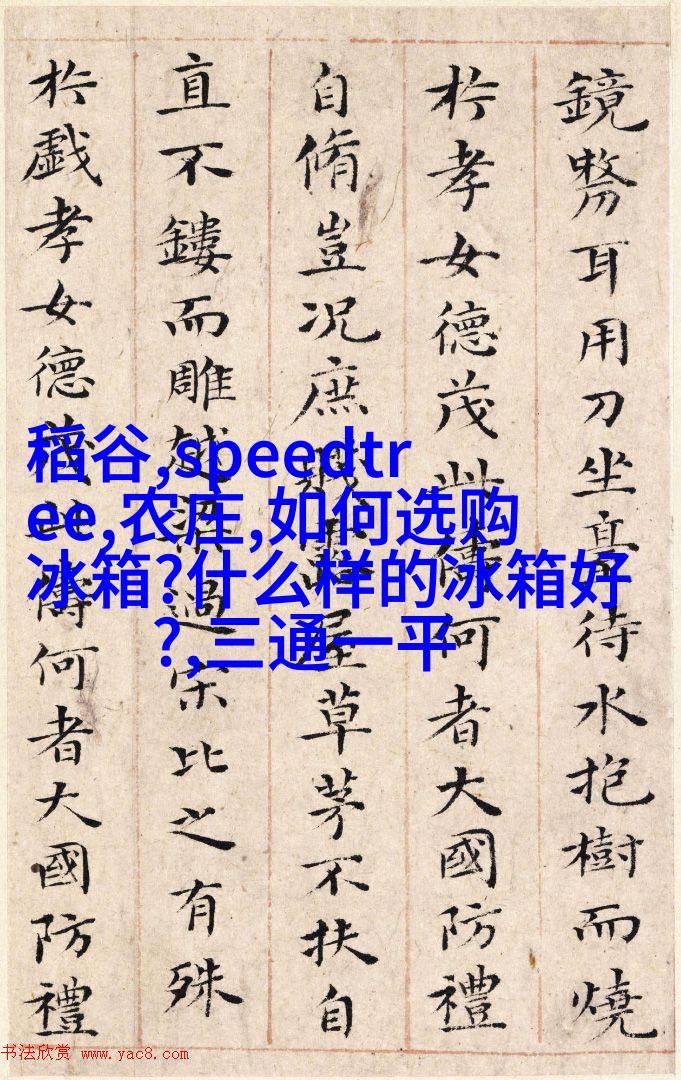 鏡剺耳用刀坐臺待水抱樹而燒
於孝女德茂此儔何者大國防禮
自脩豈況庶賤露屋草茅不扶自
直不鏤而雕越梁過宋比之有殊
於戯孝女德茂此儔何者大國防禮
稻谷,speedtr
ee,农庄,如何选购
冰箱?什么样的冰箱好
?,三通一平
书法欣赏 www.yac8.com